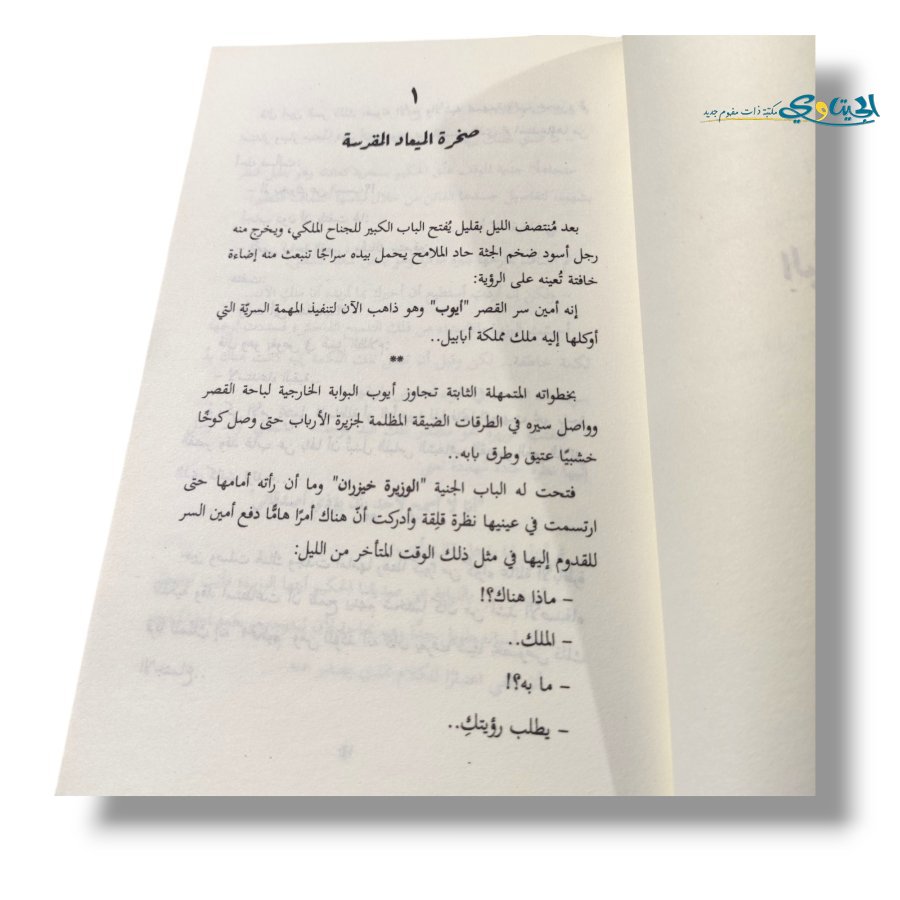 الجيتاوي مكتبة ذات مفهوم جديد
١
صخرة الميعاد المقدسة
بعد مُنتصف الليل بقليل يُفتح الباب الكبير للجناح الملكي، ويخرج منه
رجل أسود ضخم الجثة حاد الملامح يحمل بيده سراجًا تنبعث منه إضاءة
خافتة تُعينه على الرؤية:
إنه أمين سر القصر "أيوب" وهو ذاهب الآن لتنفيذ المهمة السريّة التي
أوكلها إليه ملك مملكة أبابيل..
**
بخطواته المتمهلة الثابتة تجاوز أيوب البوابة الخارجية لباحة القصر
وواصل سيره في الطرقات الضيقة المظلمة لجزيرة الأرباب حتى وصل كوخًا
خشبيًا عتيق وطرق بابه..
فتحت له الباب الجنية "الوزيرة خيزران" وما أن رأته أمامها حتى
ارتسمت في عينيها نظرة قلِقة وأدركت أنّ هناك أمرًا هامًّا دفع أمين السر
للقدوم إليها في مثل ذلك الوقت المتأخر من الليل:
– ماذا هناك؟!
– الملك..
– ما به؟!
– يطلب رؤيتكِ..